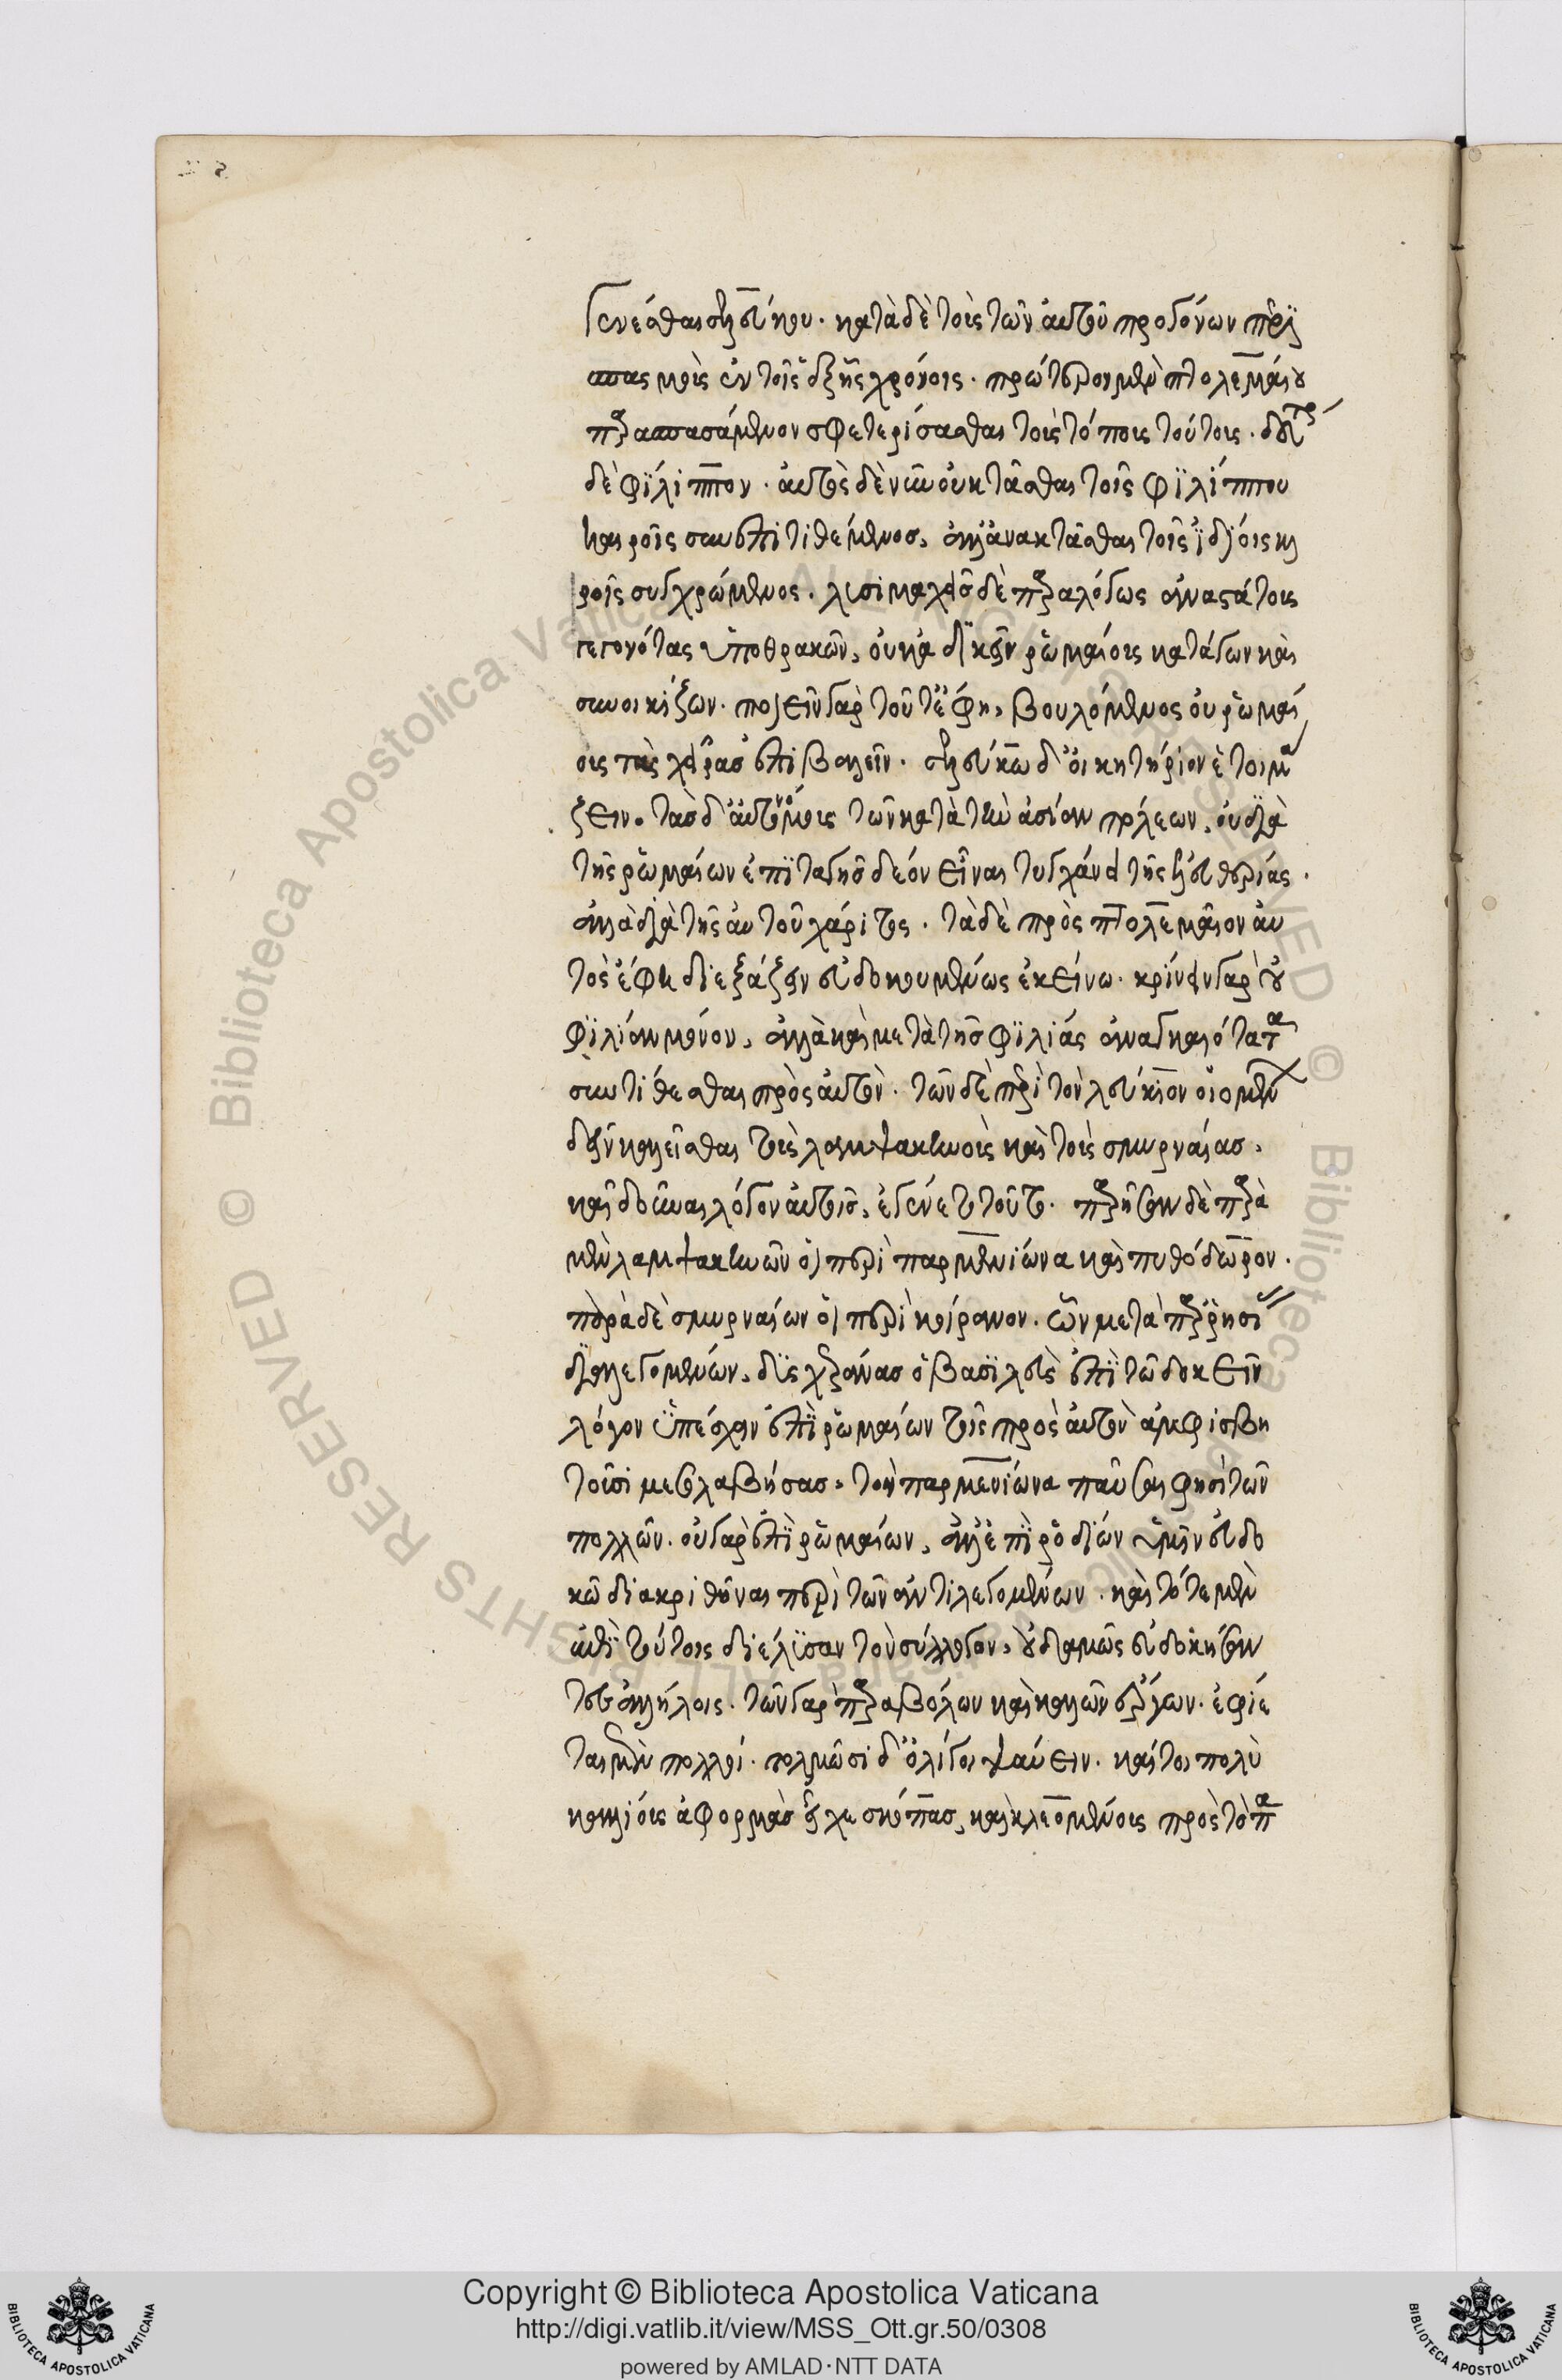 γενέσθαι σελεύκου. κατὰ δὲ τοὺς τῶν αὐτοῦ προγόνων περι
σπασμοὺς ἐν τοῖς ἑξῆς χρόνοις. πρώτερον μὲν πτολεμαίου
παρασπασάμενον σφετερίσασθαι τοὺς τόπους τούτους. δεύτερον
δὲ φίλιππον. αὐτὸς δὲ νῦν οὐ κτᾶσθαι τοῖς φιλίππου
καιροῖς συνεπιτιθέμενος, ἀλλ' ἀνακτᾶσθαι τοῖς ἰδίοις και
ροῖς συγχρώμενος. λυσιμαχεῖς δὲ παραλόγως ἀναστάτους
γεγονότας ὑπὸ θρακῶν, οὐκ ἀδικεῖν ῥωμαίους κατάγων καὶ
συνοικίζων. ποιεῖν γὰρ τοῦτ' ἔφη, βουλόμενος οὐ ῥωμαί
οις τὰς χεῖρας ἐπιβαλεῖν. σελεύκω δ' οἰκητήριον ἑτοιμά
ζειν. τὰς δ' αὐτονόμους τῶν κατὰ τὴν ἀσίαν πόλεων, οὐ διὰ
τῆς ῥωμαίων ἐπιταγῆς δέον εἶναι τυγχάνειν τῆς ἐλευθερίας.
ἀλλὰ διὰ τῆς αὐτοῦ χάριτος. τὰ δὲ πρὸς πτολεμαῖον αὐ
τὸς ἔφη διεξάξειν εὐδοκουμένως ἐκείνω. κρίνειν γὰρ οὐ
φιλίαν μόνον, ἀλλὰ καὶ μετὰ τῆς φιλίας ἀναγκαιότατα
συντίθεσθαι πρὸς αὐτὸν. τῶν δὲ περὶ τὸν λεύκιον οἰομένων
δεῖν καλεῖσθαι τοὺς λαμψακηνοὺς καὶ τοὺς σμυρναίας,
καὶ δοῦναι λόγον αὐτοῖς, ἐγένετο τοῦτο. παρῆσαν δὲ παρὰ
μὲν λαμψακηνῶν οἱ περὶ παρμενίωνα καὶ πυθόδωρον.
παρὰ δὲ σμυρναίων οἱ περὶ κοίρανον. ὧν μετὰ παρρησίας
διαλεγομένων, δυσχεράνας ὁ βασιλεὺς ἐπὶ τῶ δοκεῖν
λόγον ὑπέχειν ἐπὶ ῥωμαίων τοῖς πρὸς αὐτὸν ἀμφισβη
τοῦσι μεσολαβήσας, τὸν παρμενίωνα παῦσαι φησὶ τῶν
πολλῶν. οὐ γὰρ ἐπὶ ῥωμαίων, ἀλλ' ἐπὶ ῥοδίων ὑμῖν εὐδο
κῶ διακριθῆναι περὶ τῶν ἀντιλεγομένων. καὶ τότε μὲν
ἐπὶ τούτοις διέλυσαν τὸν σύλλογον, οὐδαμῶς εὐδοκήσαν
τες ἀλλήλοις. τῶν γὰρ παραβόλων καὶ καλῶν ἔργων. ἐφίε
ται μὲν πολλοί. τολμῶσι δ' ὀλίγοι ψαύειν. καίτοι πολὺ
καλλίους ἀφορμὰς εἶχε σκόπας, καὶ κλεομένους πρὸς τὸ πα
Copyright © Biblioteca Apostolica Vaticana
http://digi.vatlib.it/view/MSS_Ott.gr.50/0308
powered by AMLAD·NTT DATA